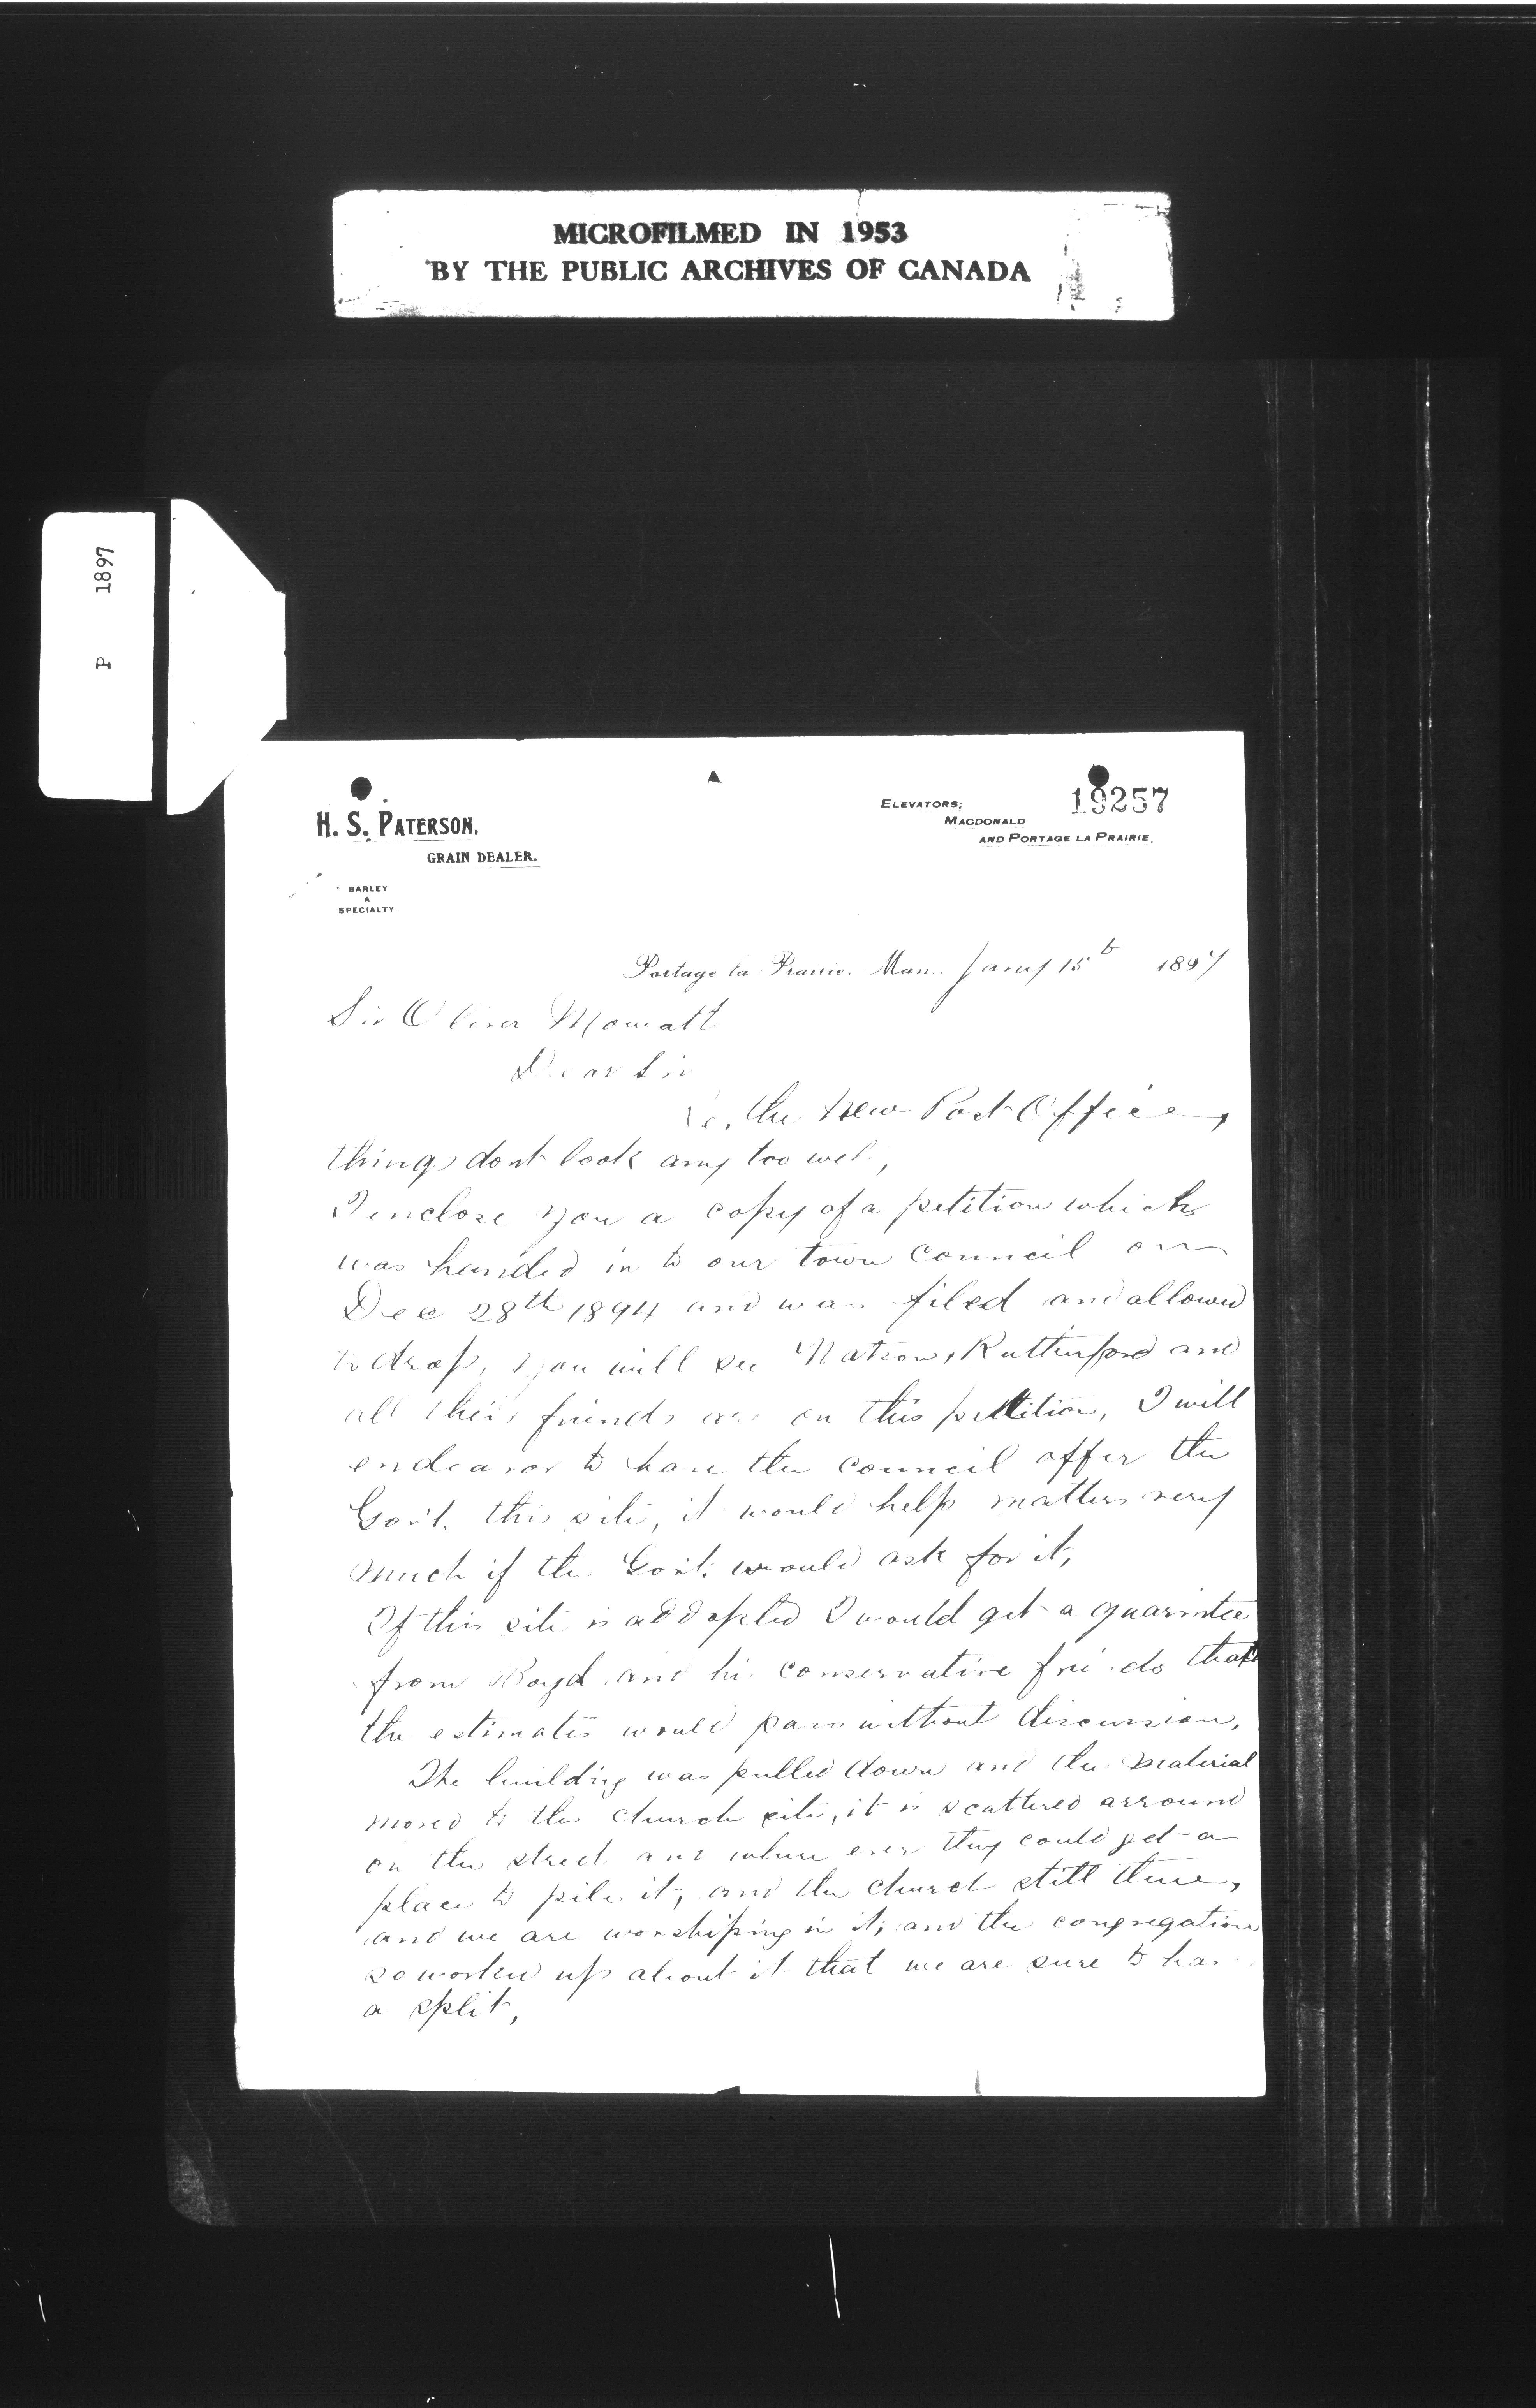 MICROFILMED IN 1953
BY THE PUBLIC ARCHIVES OF CANADA
P 1897
H. S. PATERSON,
GRAIN DEALER.
BARLEY
A
SPECIALTY
ELEVATORS;
MACDONALD
AND PORTAGE LA PRAIRIE.
19257
Portage la Prairie. Man. Jany 15th 1897
Sir Oliver Mowatt
Dear Sir
the New Post Office,
things dont look any too well,
I enclose you a copy of a petition which
was handed in to our town council on
Dec 28th 1894 and was filed and allowed
to drop, you will see Watson, Rutherford and
all their friends are on this pettition, I will
endeavor to have the council offer the
Gov't. this site, it would help matters very
much if the Gov't. would ask for it,
If this site is addopted I would get a guarintee
from Boyd and his conservative friends that
the estimates would pass without discussion,
The building was pulled down and the material
moved to the church site, it is scattered arround
on the street and where ever they could get a
place to pile it, and the church still there,
and we are worshiping in it; and the congregation
so worked up about it that we are sure to have
a split,